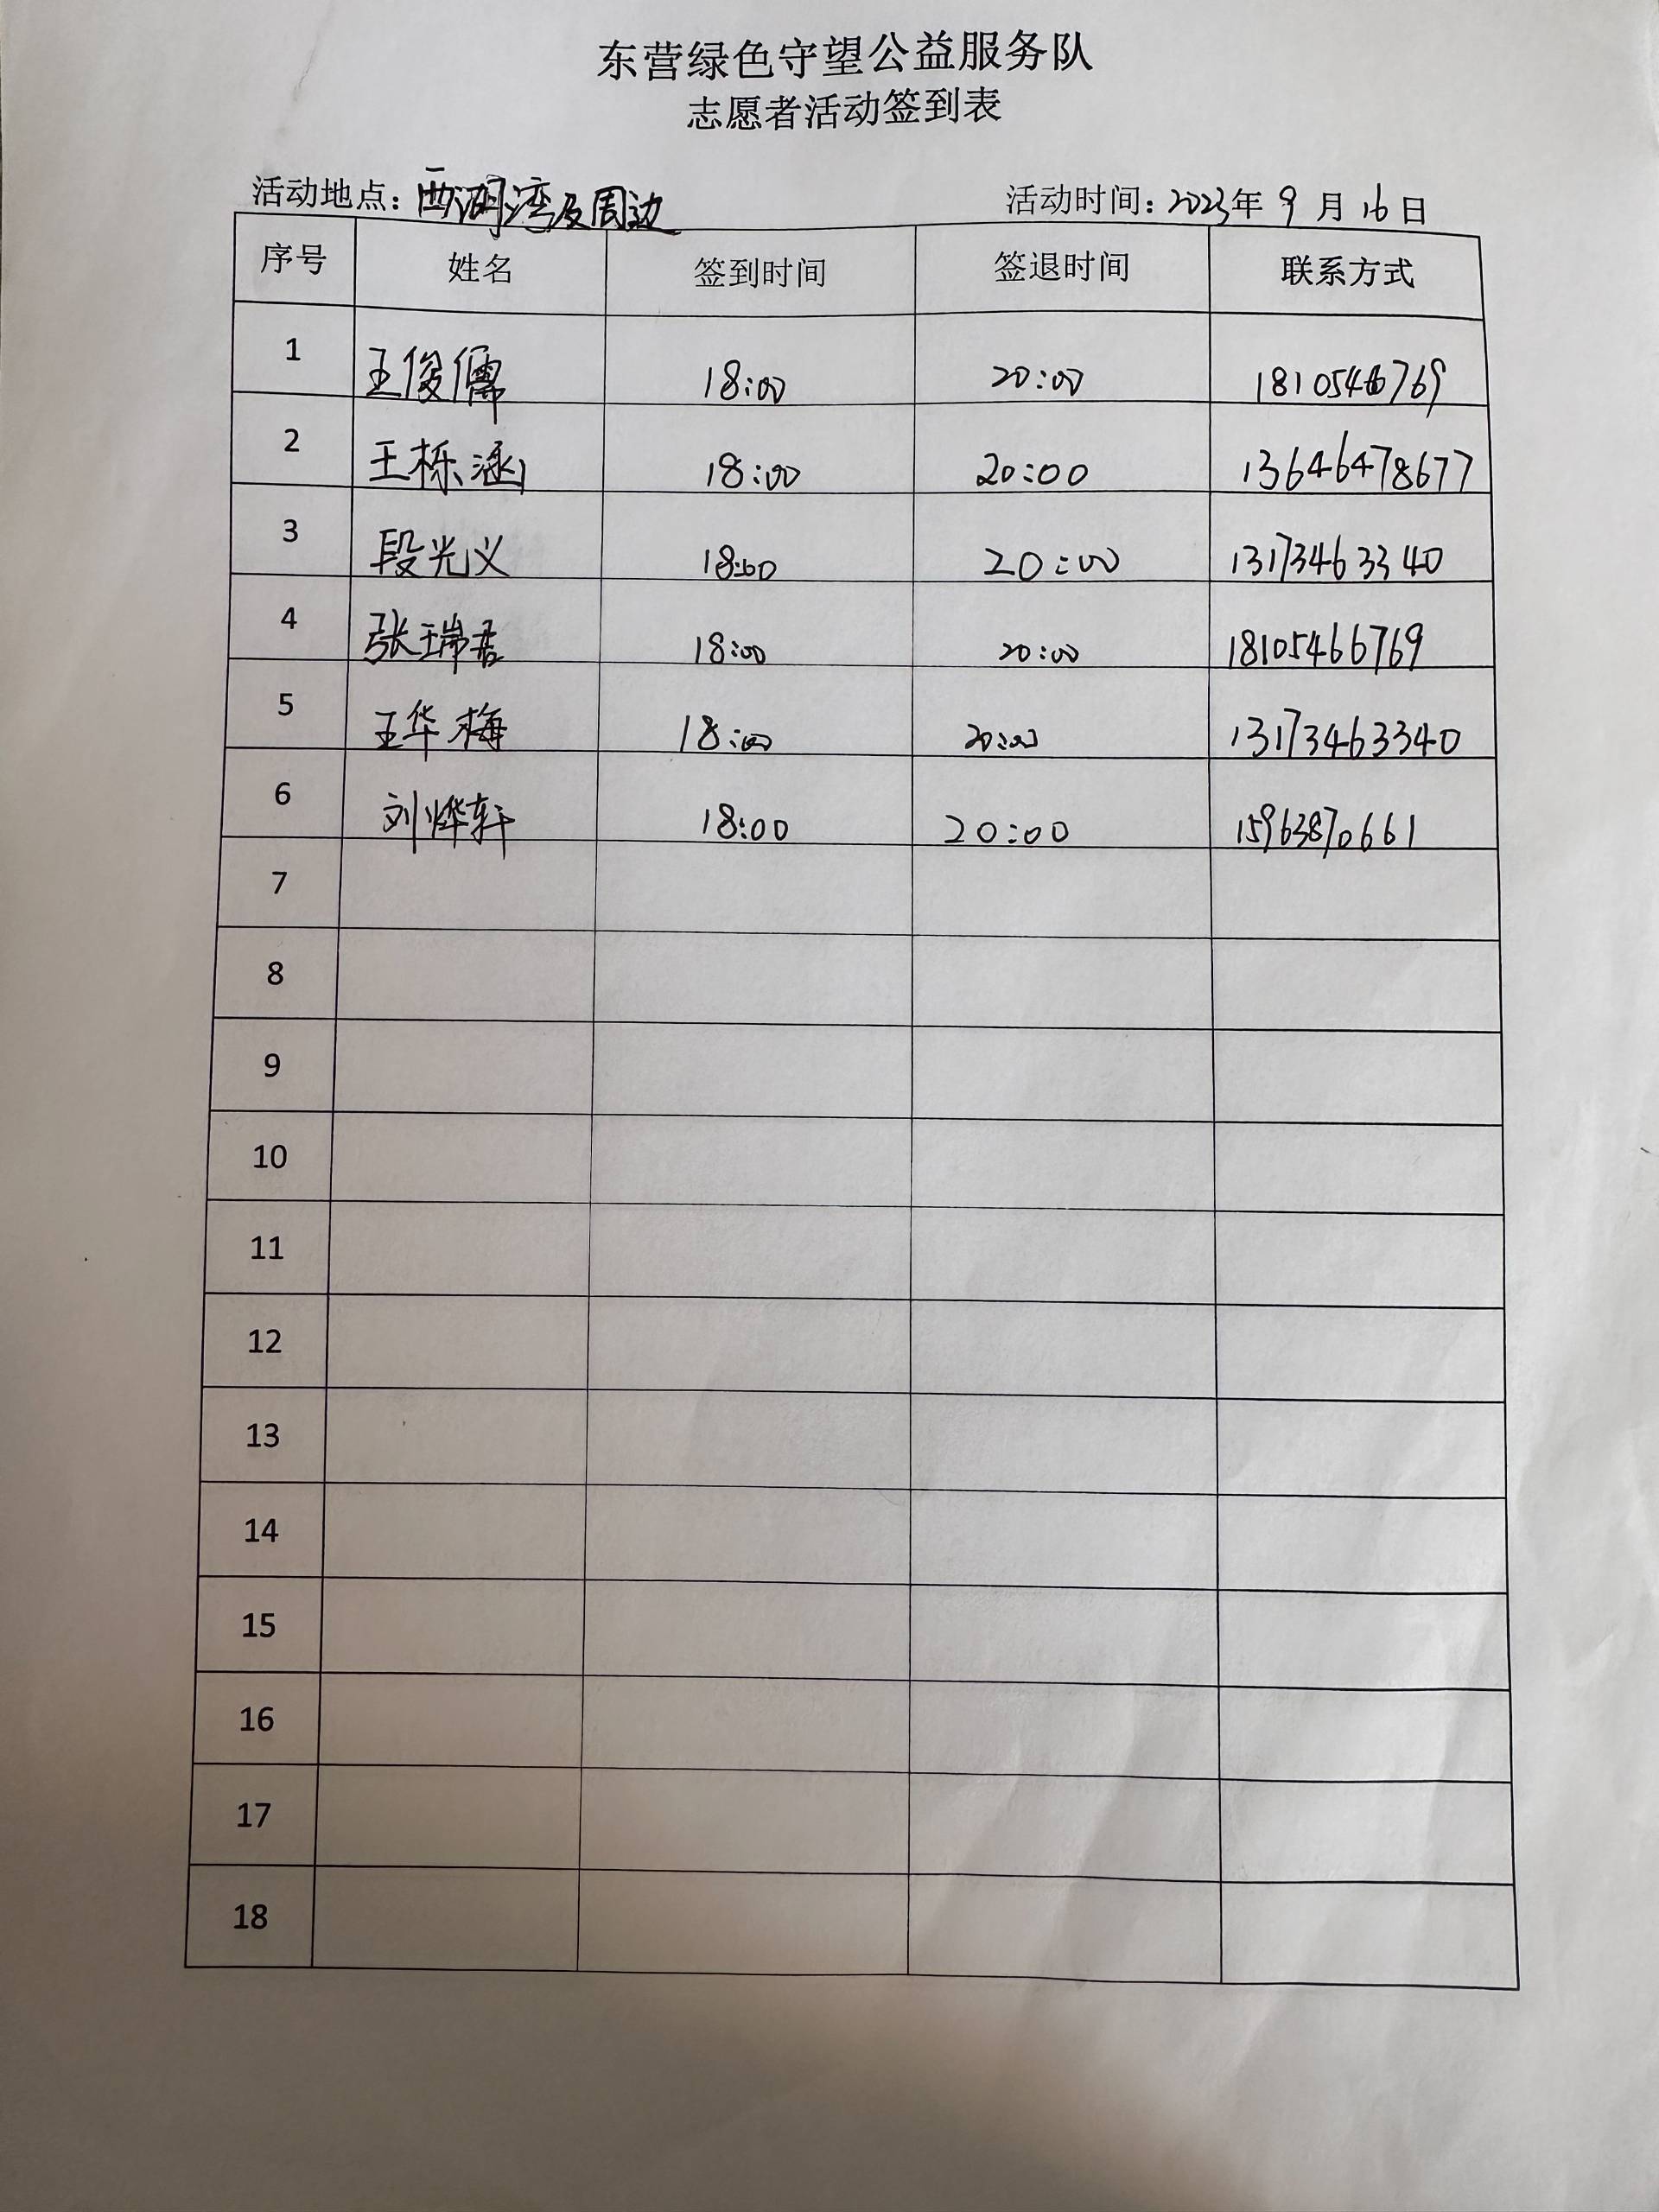 东营绿色守望公益服务队
志愿者活动签到表
活动地点：西湖湾及周边 活动时间：2023年 9 月 16 日
序号 姓名 签到时间 签退时间 联系方式
1 王俊儒 18:00 20:00 18105466769
2 王栎涵 18:00 20:00 13646478677
3 段光义 18:00 20:00 13173463340
4 张瑞君 18:00 20:00 18105466769
5 王华梅 18:00 20:00 13173463340
6 刘烨轩 18:00 20:00 15963870661
7
8
9
10
11
12
13
14
15
16
17
18